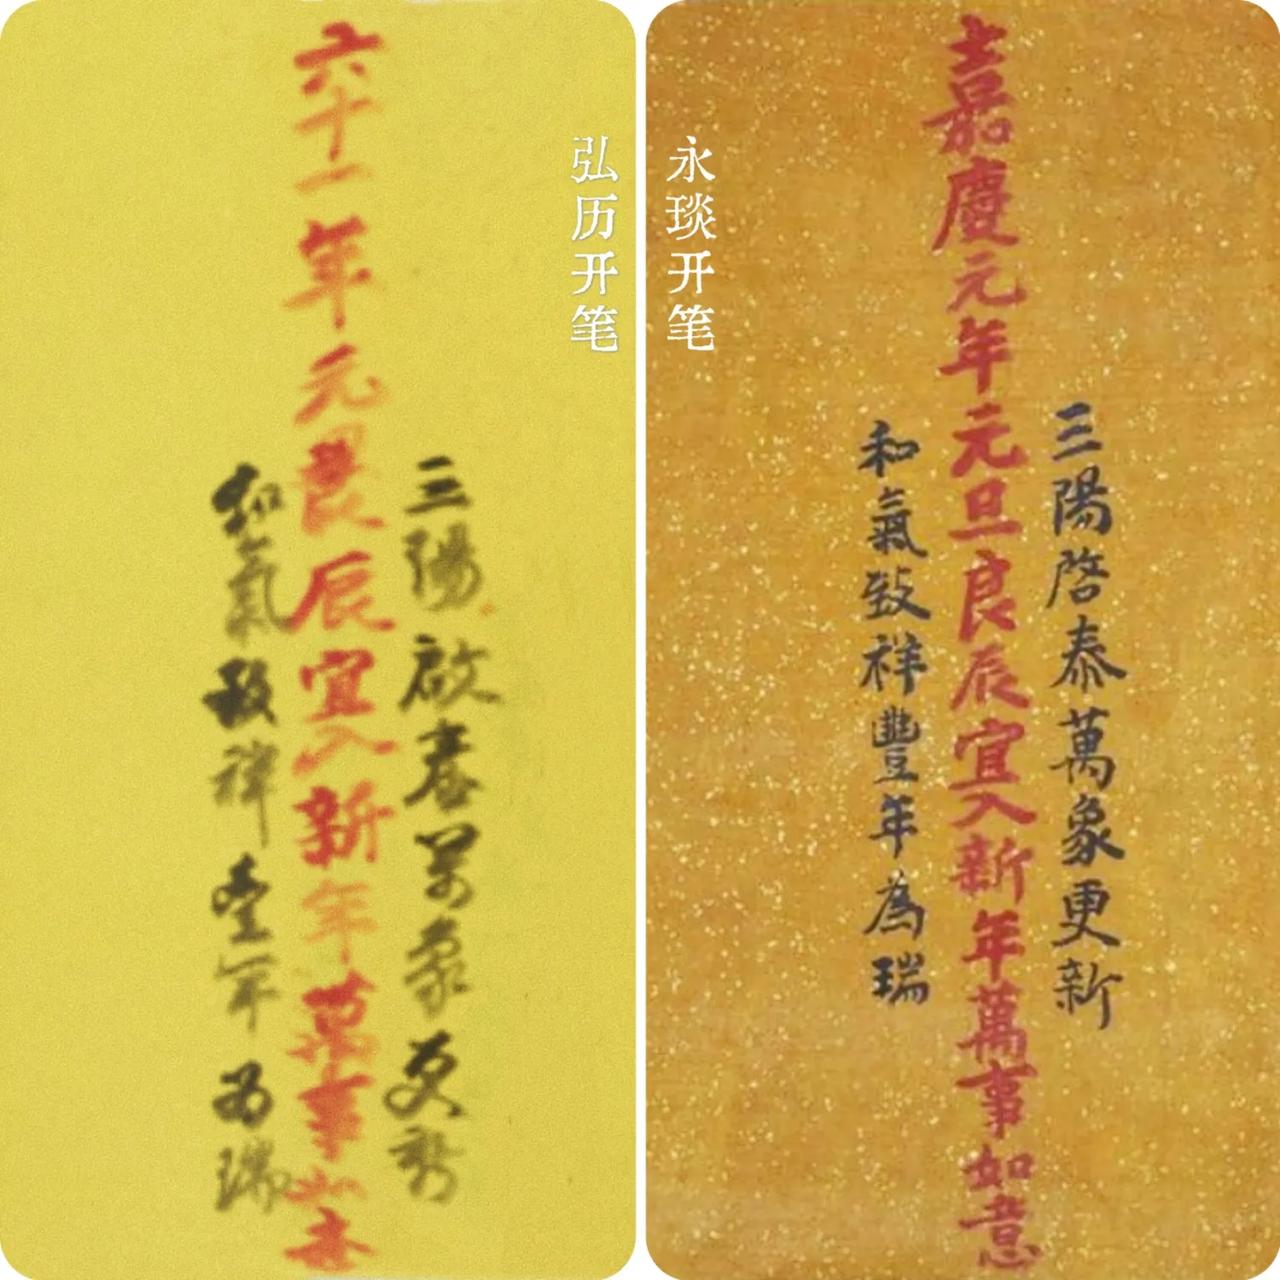 弘历开笔
六十一年元旦良辰宜入新年萬事如意
三陽啟春萬象更新
和氣致祥豐年為瑞
永琰开笔
嘉慶元年元旦良辰宜入新年萬事如意
三陽啓泰萬象更新
和氣致祥豐年為瑞